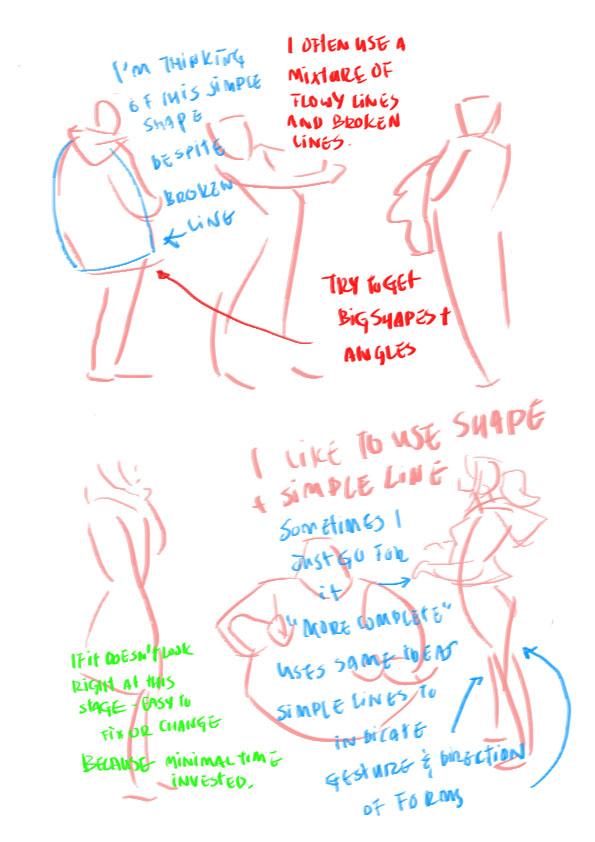 I'M THINKING
OF THIS SIMPLE
SHAPE
DESPITE
BROKEN
LINE
I OFTEN USE A
MIXTURE OF
FLOWY LINES
AND BROKEN
LINES.
TRY TO GET
BIG SHAPES +
ANGLES
I LIKE TO USE SHAPE
+ SIMPLE LINE
SOMETIMES I
JUST GO FOR
IT
"MORE COMPLETE"
USES SAME IDEAS
SIMPLE LINES TO
INDICATE
GESTURE & DIRECTION
OF FORMS
IF IT DOESN'T LOOK
RIGHT AT THIS
STAGE - EASY TO
FIX OR CHANGE
BECAUSE MINIMAL TIME
INVESTED.